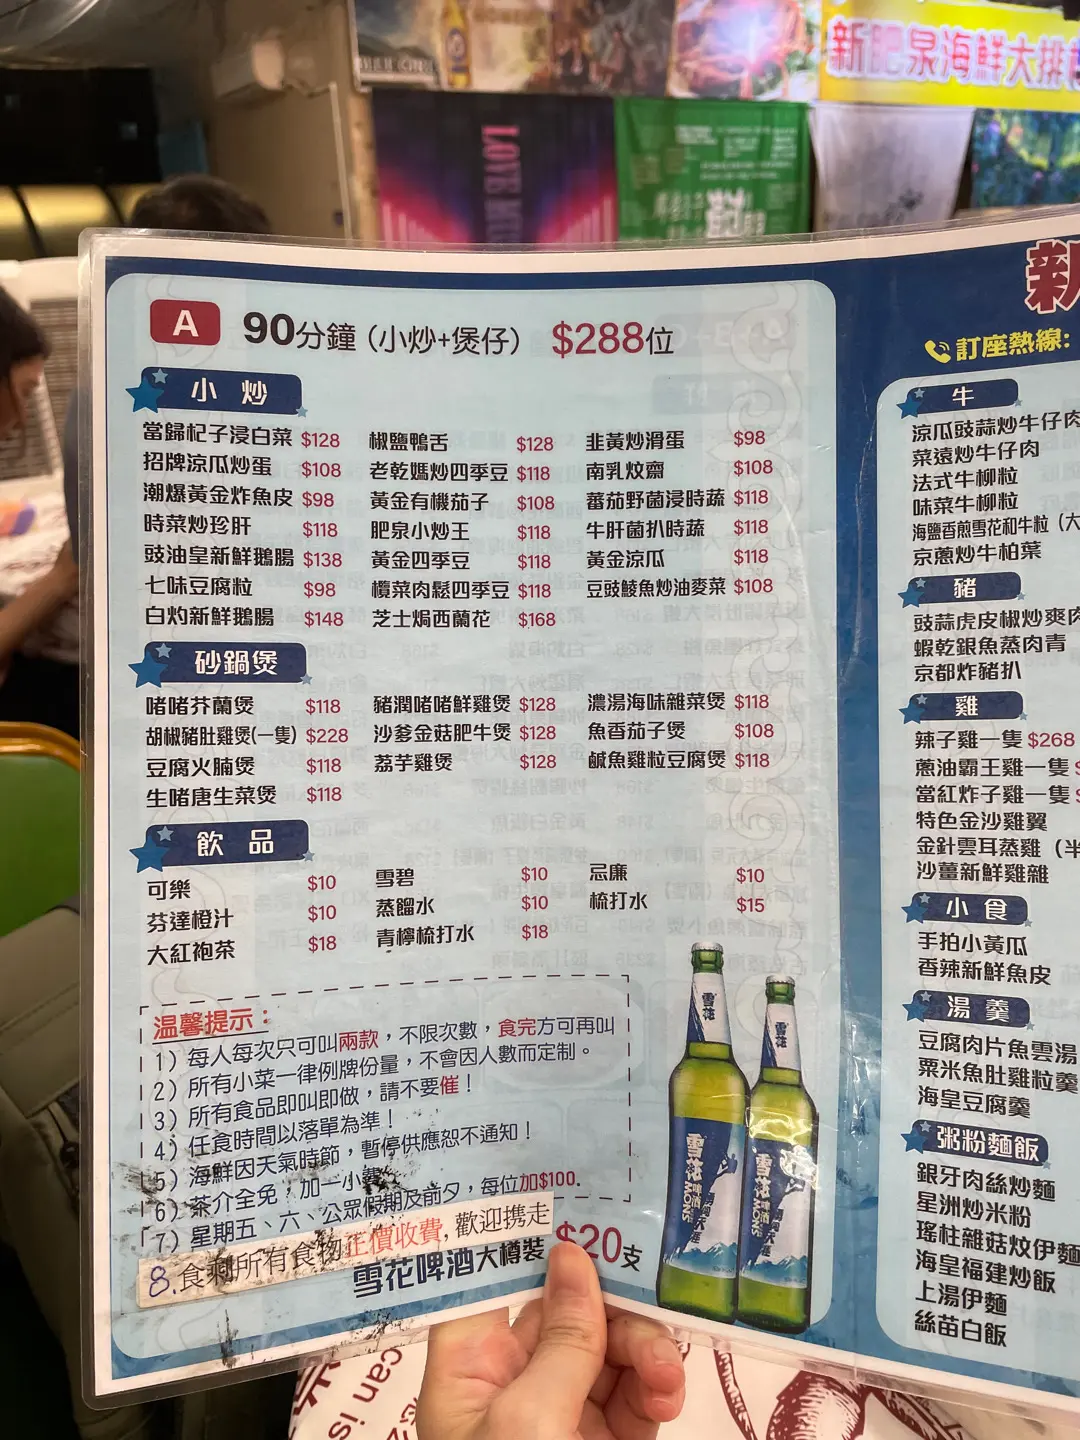 新肥泉海鮮大排
LOVE
A 90分鐘（小炒+煲仔） $288位
小炒
當歸杞子浸白菜 $128
招牌涼瓜炒蛋 $108
潮爆黃金炸魚皮 $98
時菜炒珍肝 $118
豉油皇新鮮鵝腸 $138
七味豆腐粒 $98
白灼新鮮鵝腸 $148
椒鹽鴨舌 $128
老乾媽炒四季豆 $118
黃金有機茄子 $108
肥泉小炒王 $118
黃金四季豆 $118
欖菜肉鬆四季豆 $118
芝士焗西蘭花 $168
韭黃炒滑蛋 $98
南乳炆齋 $108
蕃茄野菌浸時蔬 $118
牛肝菌扒時蔬 $118
黃金涼瓜 $118
豆豉鯪魚炒油麥菜 $108
砂鍋煲
啫啫芥蘭煲 $118
胡椒豬肚雞煲(一隻) $228
豆腐火腩煲 $118
生啫唐生菜煲 $118
豬潤啫啫鮮雞煲 $128
沙爹金菇肥牛煲 $128
荔芋雞煲 $128
濃湯海味雜菜煲 $118
魚香茄子煲 $108
鹹魚雞粒豆腐煲 $118
飲品
可樂 $10
芬達橙汁 $10
大紅袍茶 $18
雪碧 $10
蒸餾水 $10
青檸梳打水 $18
忌廉 $10
梳打水 $15
溫馨提示：
1）每人每次只可叫兩款，不限次數，食完方可再叫
2）所有小菜一律例牌份量，不會因人數而定制。
3）所有食品即叫即做，請不要催！
4）任食時間以落單為準！
5）海鮮因天氣時節，暫停供應恕不通知！
6）茶介全免，加一小費
7）星期五、六、公眾假期及前夕，每位加$100.
8.食剩所有食物正價收費,歡迎携走
雪花啤酒大樽裝 $20支
雪花
雪花
雪花啤酒
雪花啤酒
新
訂座熱線:
牛
涼瓜豉蒜炒牛仔肉
菜遠炒牛仔肉
法式牛柳粒
味菜牛柳粒
海鹽香煎雪花和牛粒（大
京蔥炒牛柏葉
豬
豉蒜虎皮椒炒爽肉
蝦乾銀魚蒸肉青
京都炸豬扒
雞
辣子雞一隻 $268
蔥油霸王雞一隻 $
當紅炸子雞一隻 $
特色金沙雞翼
金針雲耳蒸雞（半
沙薑新鮮雞雜
小食
手拍小黃瓜
香辣新鮮魚皮
湯羹
豆腐肉片魚雲湯
粟米魚肚雞粒羹
海皇豆腐羹
粥粉麵飯
銀牙肉絲炒麵
星洲炒米粉
瑤柱雜菇炆伊麵
海皇福建炒飯
上湯伊麵
絲苗白飯
can is